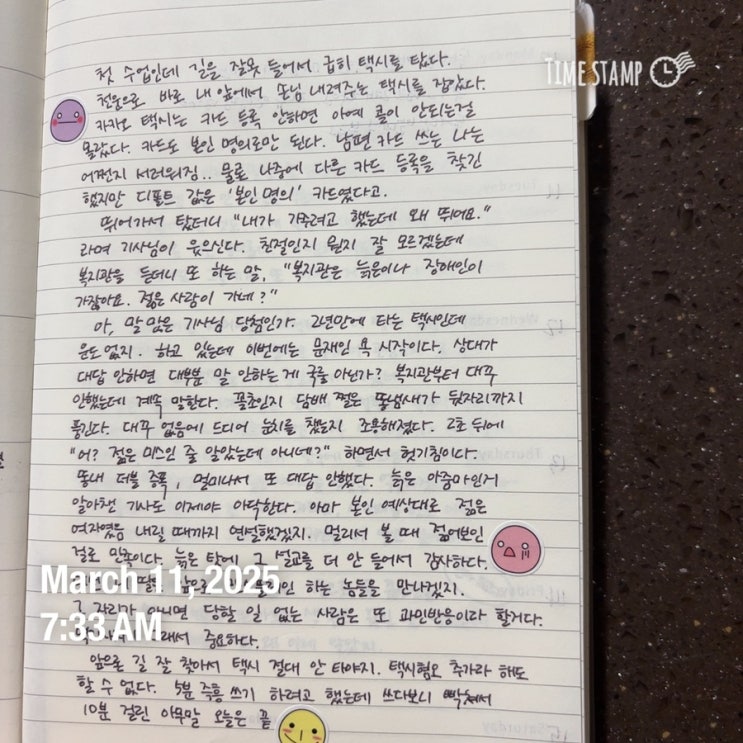 TIME STAMP
첫 수업인데 길을 잘못 들어서 급히 택시를 탔다.
천운으로 바로 내 앞에서 손님 내려주는 택시를 잡았다.
카카오 택시는 카드 등록 안하면 아예 콜이 안되는걸
몰랐다. 카드도 본인 명의로만 된다. 남편 카드 쓰는 나는
어쩐지 서러워짐.. 물론 나중에 다른 카드 등록을 찾긴
했지만 디폴트 값은 '본인 명의' 카드였다고.
뛰어가서 탔더니 "내가 가주려고 했는데 왜 뛰어요."
라며 기사님이 웃으신다. 친절인지 뭔지 잘 모르겠는데
복지관을 듣더니 또 하는 말, "복지관은 늙은이나 장애인이
가잖아요. 젊은 사람이 가네?"
아, 말 많은 기사님 당첨인가. 2년만에 타는 택시인데
운도 없지. 하고 있는데 이번에는 문재인 욕 시작이다. 상대가
대답 안하면 대부분 말 안하는 게 국룰 아닌가? 복지관부터 대꾸
안했는데 계속 말한다. 꼴초인지 담배 쩔은 똥냄새가 뒷자리까지
풍긴다. 대꾸 없음에 드디어 눈치를 챘는지 조용해졌다. 2초 뒤에
"어? 젊은 미스인 줄 알았는데 아니네?" 하면서 헛기침이다.
똥내 더블 증폭, 멀미나서 또 대답 안했다. 늙은 아줌마인거
알아챈 기사도 이제야 아닥한다. 아마 본인 예상대로 젊은
여자였음 내릴 때까지 연설했겠지. 멀리서 볼 때 젊어보인
걸로 만족이다. 늙은 탓에 그 설교를 더 안 들어서 감사하다.
하는 놈들을 만나겠지.
그 자리가 아니면 당할 일 없는 사람은 또 과민반응이라 할거다.
중요하다.
앞으로 길 잘 찾아서 택시 절대 안 타야지. 택시혐오 추가라 해도
할 수 없다. 5분 쓰기 하려고 했는데 쓰다보니 빡쳐서
10분 걸린 아무말 오늘은 끝
March 11, 2025
7:33 AM